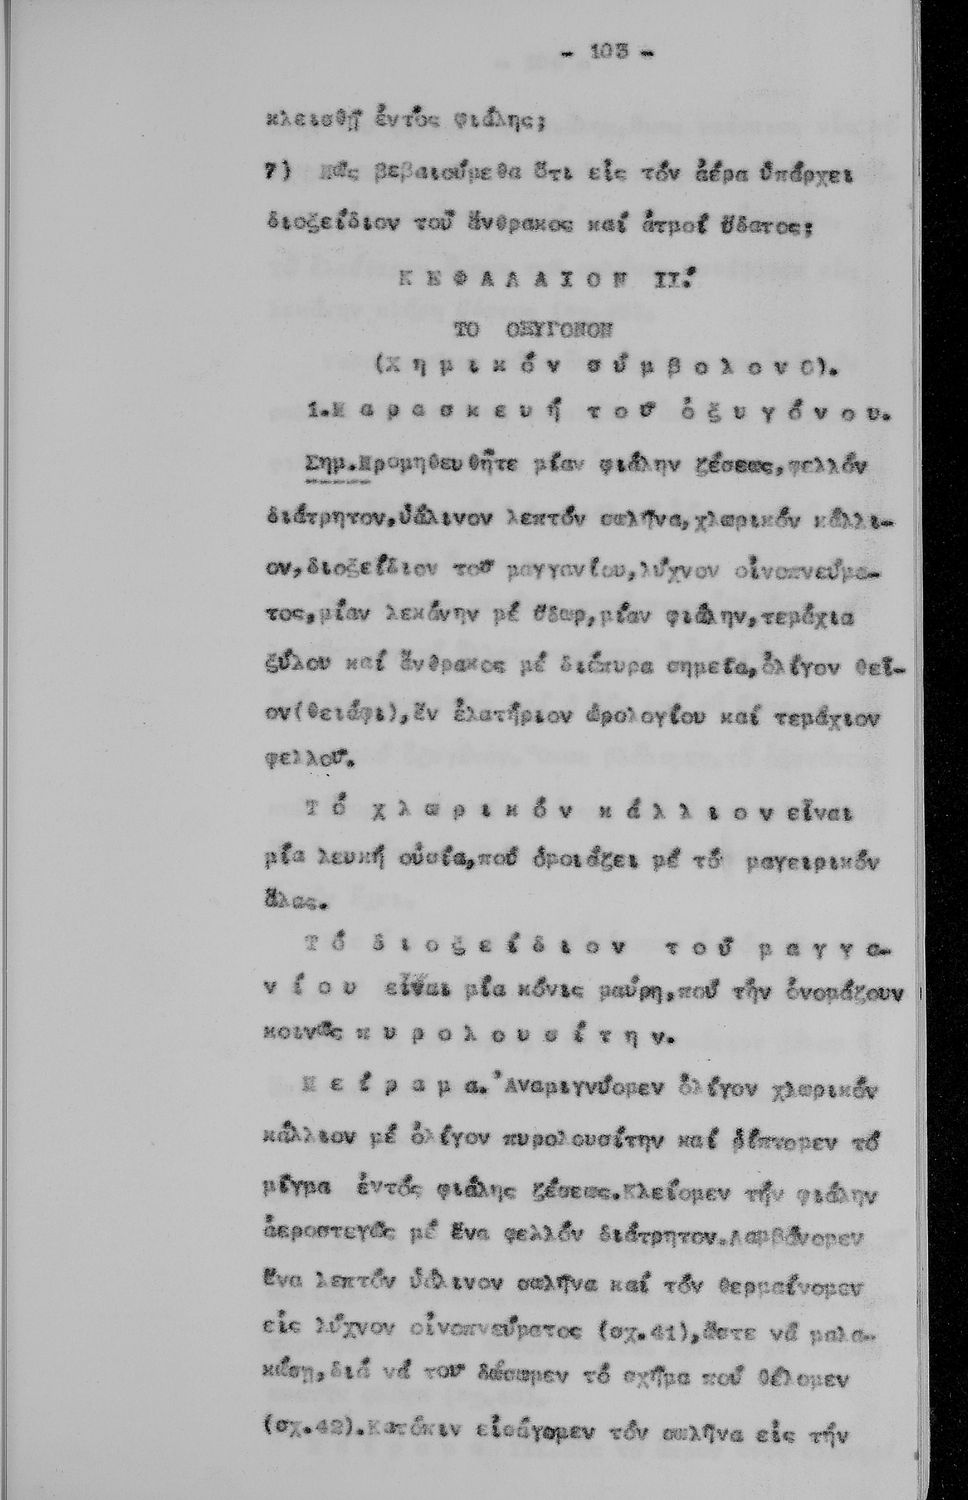 - 103 -
κλεισθῇ ἐντός φιάλης;
7) Πῶς βεβαιούμεθα ὅτι εἰς τόν ἀέρα ὑπάρχει
διοξείδιον τοῦ ἄνθρακος καί ἀτμοί ὕδατος;
Κ Ε Φ Α Λ Α Ι Ο Ν ΙΙ.
ΤΟ ΟΞΥΓΟΝΟΝ
(Χ η μ ι κ ό ν σ ύ μ β ο λ ο ν Ο).
1.Π α ρ α σ κ ε υ ή τ ο ῦ ὀ ξ υ γ ό ν ο υ.
Σημ.Προμηθευθῆτε μίαν φιάλην ζέσεως,φελλόν
διάτρητον,ὑάλινον λεπτόν σωλῆνα,χλωρικόν κάλλι-
ον,διοξείδιον τοῦ μαγγανίου,λύχνον οἰνοπνεύμα-
τος,μίαν λεκάνην μέ ὕδωρ,μίαν φιάλην,τεμάχια
ξύλου καί ἄνθρακος μέ διάπυρα σημεῖα,ὀλίγον θεῖ-
ον(θειάφι),ἕν ἐλατήριον ὡρολογίου καί τεμάχιον
φελλοῦ.
Τ ό χ λ ω ρ ι κ ό ν κ ά λ λ ι ο ν εἶναι
μία λευκή οὐσία,πού ὁμοιάζει μέ τό μαγειρικόν
ἅλας.
Τ ό δ ι ο ξ ε ί δ ι ο ν τ ο ῦ μ α γ γ α-
ν ί ο υ εἶναι μία κόνις μαύρη,πού τήν ὀνομάζουν
κοινῶς π υ ρ ο λ ο υ σ ί τ η ν.
Π ε ί ρ α μ α. Ἀναμιγνύομεν ὀλίγον χλωρικόν
κάλλιον μέ ὀλίγον πυρολουσίτην καί ῥίπτομεν τό
μῖγμα ἐντός φιάλης ζέσεως.Κλείομεν τήν φιάλην
ἀεροστεγῶς μέ ἕνα φελλόν διάτρητον.Λαμβάνομεν
ἕνα λεπτόν ὑάλινον σωλῆνα καί τόν θερμαίνομεν
εἰς λύχνον οἰνοπνεύματος (σχ.41),ὥστε νά μαλα-
κώσῃ,διά νά τοῦ δώσωμεν τό σχῆμα πού θέλομεν
(σχ.42).Κατόπιν εἰσάγομεν τόν σωλῆνα εἰς τήν